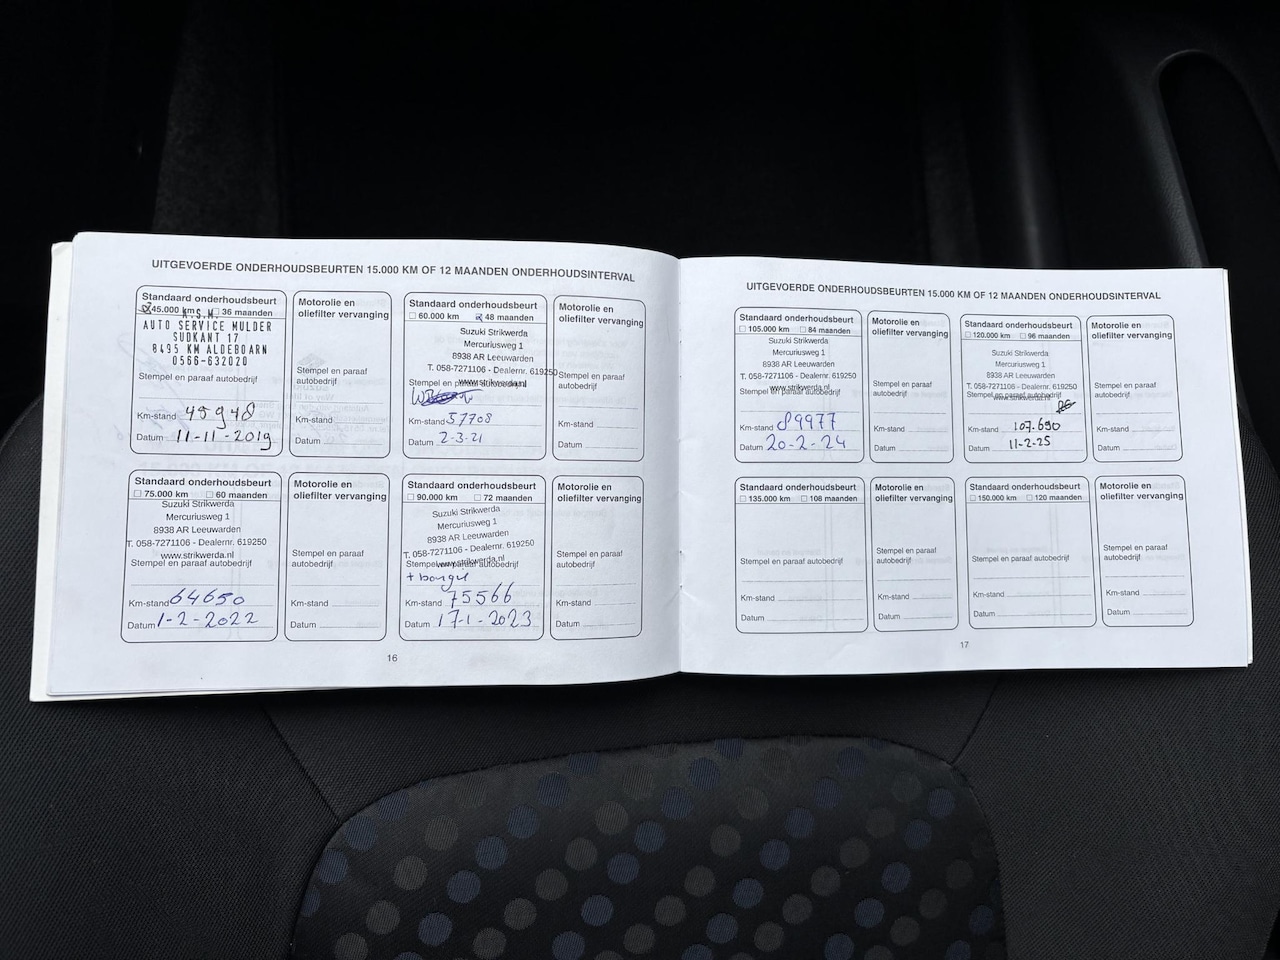 UITGEVOERDE ONDERHOUDSBEURTEN 15.000 KM OF 12 MAANDEN ONDERHOUDSINTERVAL
Standaard onderhoudsbeurt
45.000 km 36 maanden
A.S.M.
AUTO SERVICE MULDER
SUDKANT 17
8495 KM ALDEBOARN
0566-632020
Stempel en paraaf autobedrijf
Km-stand 45948
Datum 11-11-2019
Motorolie en
oliefilter vervanging
Stempel en paraaf
autobedrijf
Km-stand
Datum
Standaard onderhoudsbeurt
60.000 km 48 maanden
Suzuki Strikwerda
Mercuriusweg 1
8938 AR Leeuwarden
T. 058-7271106 - Dealernr. 619250
www.strikwerda.nl
Stempel en paraaf autobedrijf
Km-stand 57708
Datum 2-3-21
Motorolie en
oliefilter vervanging
Stempel en paraaf
autobedrijf
Km-stand
Datum
Standaard onderhoudsbeurt
75.000 km 60 maanden
Suzuki Strikwerda
Mercuriusweg 1
8938 AR Leeuwarden
T. 058-7271106 - Dealernr. 619250
www.strikwerda.nl
Stempel en paraaf autobedrijf
Km-stand 64650
Datum 1-2-2022
Motorolie en
oliefilter vervanging
Stempel en paraaf
autobedrijf
Km-stand
Datum
Standaard onderhoudsbeurt
90.000 km 72 maanden
Suzuki Strikwerda
Mercuriusweg 1
8938 AR Leeuwarden
T. 058-7271106 - Dealernr. 619250
www.strikwerda.nl
Stempel en paraaf autobedrijf
+ bougie
Km-stand 75566
Datum 17-1-2023
Motorolie en
oliefilter vervanging
Stempel en paraaf
autobedrijf
Km-stand
Datum
16
UITGEVOERDE ONDERHOUDSBEURTEN 15.000 KM OF 12 MAANDEN ONDERHOUDSINTERVAL
Standaard onderhoudsbeurt
105.000 km 84 maanden
Suzuki Strikwerda
Mercuriusweg 1
8938 AR Leeuwarden
T. 058-7271106 - Dealernr. 619250
www.strikwerda.nl
Stempel en paraaf autobedrijf
Km-stand 89977
Datum 20-2-24
Motorolie en
oliefilter vervanging
Stempel en paraaf
autobedrijf
Km-stand
Datum
Standaard onderhoudsbeurt
120.000 km 96 maanden
Suzuki Strikwerda
Mercuriusweg 1
8938 AR Leeuwarden
T. 058-7271106 - Dealernr. 619250
www.strikwerda.nl
Stempel en paraaf autobedrijf
Km-stand 107.690
Datum 11-2-25
Motorolie en
oliefilter vervanging
Stempel en paraaf
autobedrijf
Km-stand
Datum
Standaard onderhoudsbeurt
135.000 km 108 maanden
Stempel en paraaf autobedrijf
Km-stand
Datum
Motorolie en
oliefilter vervanging
Stempel en paraaf
autobedrijf
Km-stand
Datum
Standaard onderhoudsbeurt
150.000 km 120 maanden
Stempel en paraaf autobedrijf
Km-stand
Datum
Motorolie en
oliefilter vervanging
Stempel en paraaf
autobedrijf
Km-stand
Datum
17